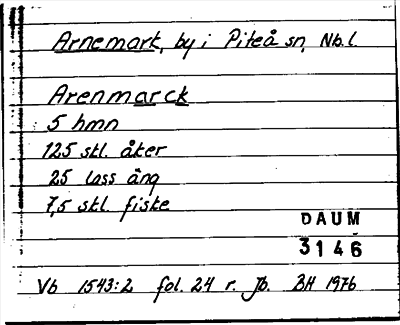 Arnemark, by i Piteå sn, Nb.l.
Arenmarck
5 hmn
125 skl. åker
25 lass äng
7,5 skl. fiske
DAUM
3146
Vb 1543:2 fol. 24 r. Jb. BH 1976